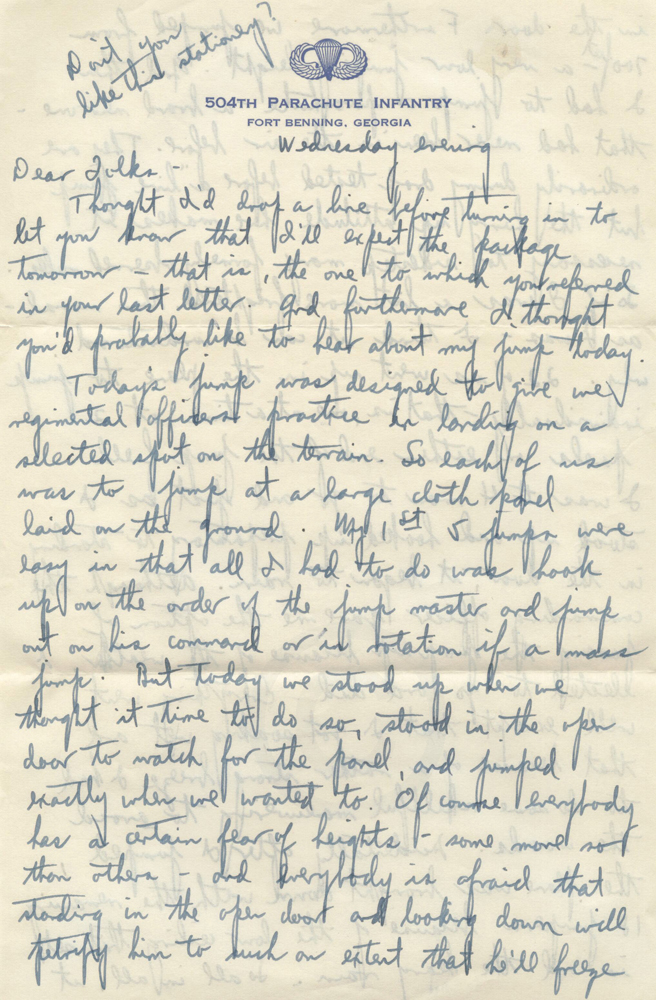 Don't you
like this stationery?
504TH PARACHUTE INFANTRY
FORT BENNING, GEORGIA
Wednesday evening
Dear Folks -
Thought I'd drop a line before turning in to
let you know that I'll expect the package
tomorrow - that is, the one to which you referred
in your last letter. And furthermore I thought
you'd probably like to hear about my jump today.
Today's jump was designed to give we
regimental officers practice in landing on a
selected spot on the terrain. So each of us
was to jump at a large cloth panel
laid on the ground. My 1st 5 jumps were
easy in that all I had to do was hook
up on the order of the jump master and jump
out on his command or in rotation if a mass
jump. But today we stood up when we
thought it time to do so, stood in the open
door to watch for the panel, and jumped
exactly when we wanted to. Of course everybody
has a certain fear of heights - some more so
than others - and everybody is afraid that
standing in the open door and looking down will
petrify him to such an extent that he'll freeze